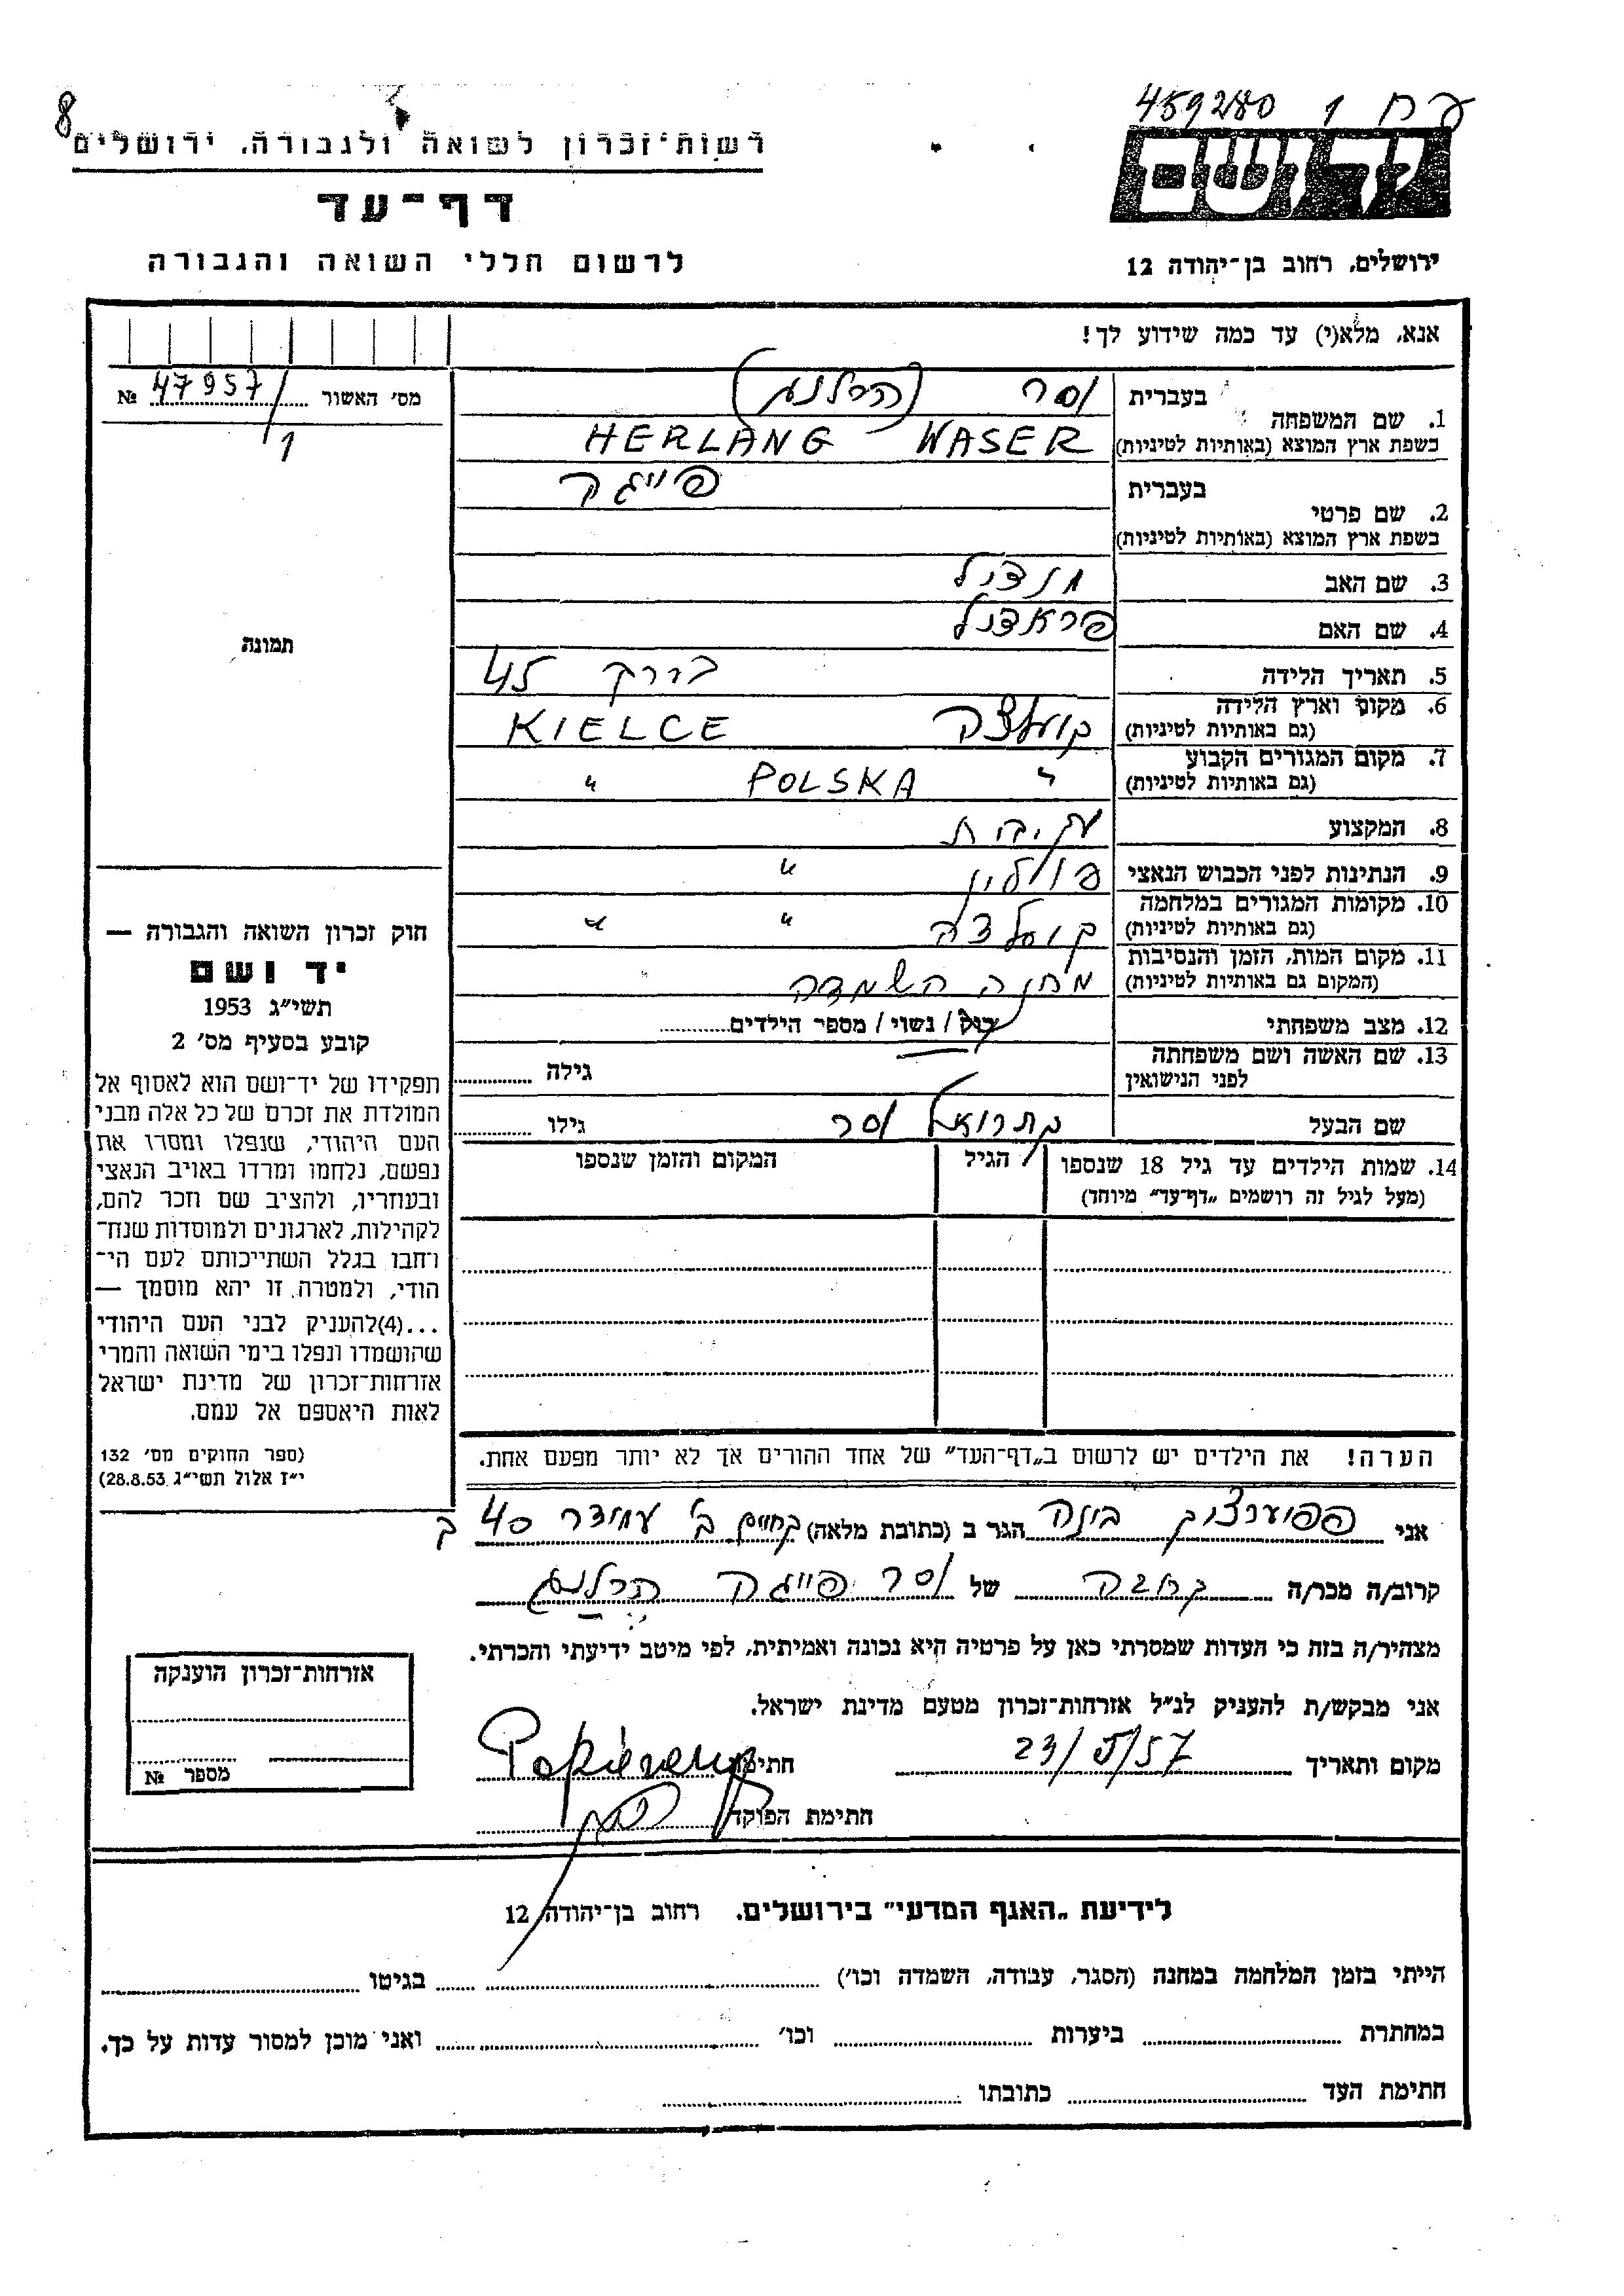 עח 1 459280
8
רשות־זכרון לשואה ולגבורה, ירושלים
יד ושם
דף־עד
לרשום חללי השואה והגבורה
ירושלים, רחוב בן־יהודה 12
אנא, מלא(י) עד כמה שידוע לך!
מס׳ האשור 47957/1 №
1. שם המשפחה בעברית וסר (הרלנג)
בשפת ארץ המוצא (באותיות לטיניות) WASER HERLANG
2. שם פרטי בעברית פייגה
בשפת ארץ המוצא (באותיות לטיניות)
3. שם האב
4. שם האם
5. תאריך הלידה בערך 45
6. מקום וארץ הלידה
(גם באותיות לטיניות) KIELCE
7. מקום המגורים הקבוע
(גם באותיות לטיניות) " POLSKA "
8. המקצוע עק. בית
9. הנתינות לפני הכבוש הנאצי פולין "
10. מקומות המגורים במלחמה
(גם באותיות לטיניות) " "
11. מקום המות, הזמן והנסיבות
(המקום גם באותיות לטיניות) מחנה השמדה
12. מצב משפחתי רווק / נשוי / מספר הילדים
13. שם האשה ושם משפחתה
לפני הנישואין
גילה
שם הבעל וסר
גילו
14. שמות הילדים עד גיל 18 שנספו
(מעל לגיל זה רושמים „דף־עד״ מיוחד)
הגיל
המקום והזמן שנספו
הערה! את הילדים יש לרשום ב„דף־העד״ של אחד ההורים אך לא יותר מפעם אחת.
תמונה
חוק זכרון השואה והגבורה —
יד ושם
תשי״ג 1953
קובע בסעיף מס׳ 2
תפקידו של יד־ושם הוא לאסוף אל
המולדת את זכרם של כל אלה מבני
העם היהודי, שנפלו ומסרו את
נפשם, נלחמו ומרדו באויב הנאצי
ובעוזריו, ולהציב שם וזכר להם,
לקהילות, לארגונים ולמוסדות שנח־
רבו בגלל השתייכותם לעם הי־
הודי, ולמטרה זו יהא מוסמך —
...(4)להעניק לבני העם היהודי
שהושמדו ונפלו בימי השואה והמרי
אזרחות־זכרון של מדינת ישראל
לאות היאספם אל עמם.
(ספר החוקים מס׳ 132
י״ז אלול תשי״ג 28.8.53)
אני בונה הגר ב (כתובת מלאה) עמידר 40
קרוב/ה מכר/ה קרובה של וסר פייגה הרלנג
מצהיר/ה בזה כי העדות שמסרתי כאן על פרטיה היא נכונה ואמיתית, לפי מיטב ידיעתי והכרתי.
אני מבקש/ת להעניק לנ״ל אזרחות־זכרון מטעם מדינת ישראל.
מקום ותאריך 23/5/57 חתימה
חתימת הפוקד
אזרחות־זכרון הוענקה
מספר №
לידיעת „האגף המדעי״ בירושלים, רחוב בן־יהודה 12
הייתי בזמן המלחמה במחנה (הסגר, עבודה, השמדה וכו׳) בגיטו
במחתרת ביערות וכו׳ ואני מוכן למסור עדות על כך.
חתימת העד כתובתו